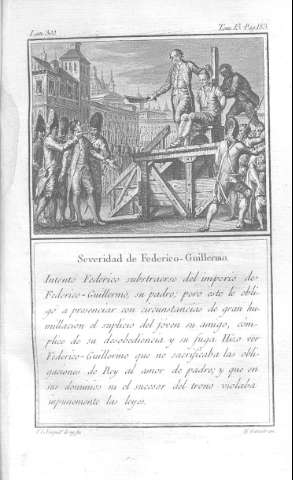 Lam. 302
Tom. 13. Pag. 183.
Severidad de Federico-Guillermo
Intento Federico substraerse del imperio de
Federico-Guillermo, su padre; pero este le obli-
gó a presenciar con circunstancias de gran hu-
millacion el suplicio del joven su amigo, cóm-
plice de su desobediencia y su fuga. Hizo ver
Federico-Guillermo que no sacrificaba las obli-
gaciones de Rey al amor de padre; y que en
sus dominios ni el sucesor del trono violaba
impunemente las leyes.